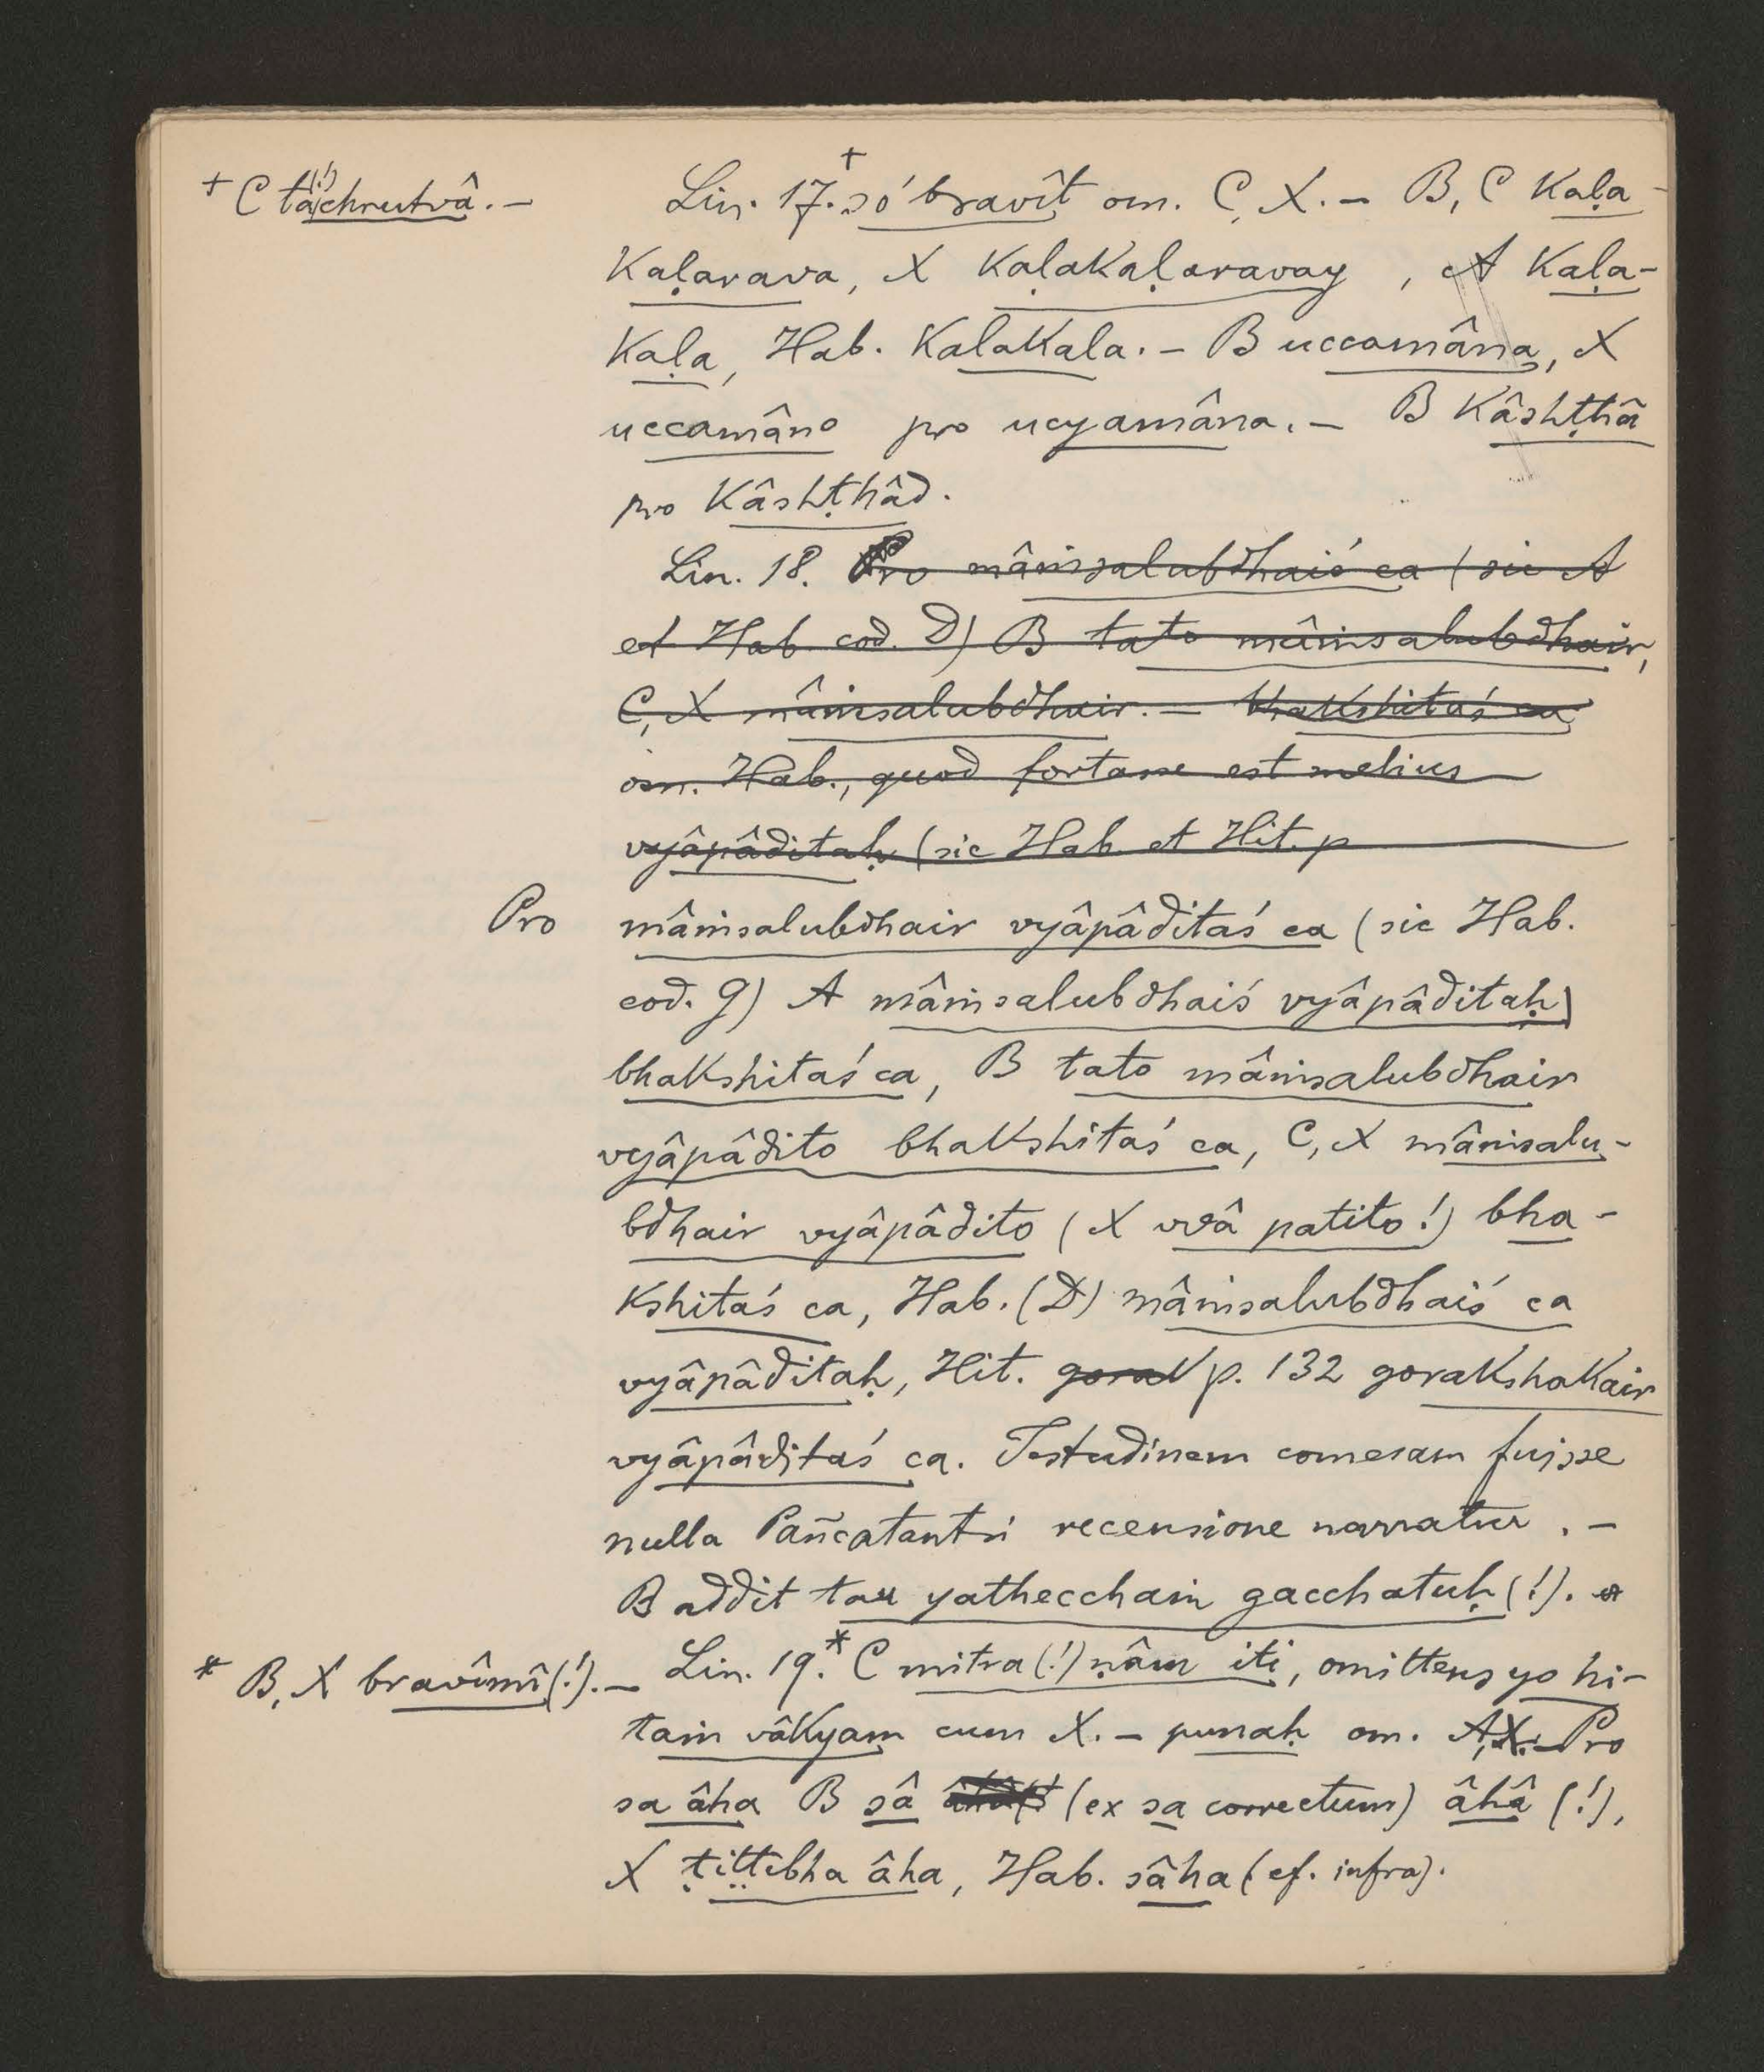 + C tâ(!)chrutvâ. —
Lin. 17.+ só bravît om. C, X. — B, C kaḷa-
kaḷarava, X kaḷakaḷaravay, A kaḷa-
kaḷa, Hab. kalakala. — B uccamâna, X
uccamâno pro ucyamâna. — B kâshṭhâ
pro kâshṭhâd.
Lin. 18. Pro mâṁsalubdhaiś ca (sic A
et Hab. cod. D) B tato mâṁsalubdhair,
C, X mâṁsalubdhair. — bhakshitaś ca
om. Hab., quod fortasse est melius
vyâpâditaḥ (sic Hab. et Hit. p
Pro mâṁsalubdhair vyâpâditaś ca (sic Hab.
cod. G) A mâṁsalubdhaiś vyâpâditaḥ)
bhakshitaś ca, B tato mâṁsalubdhair
vyâpâdito bhakshitaś ca, C, X mâṁsalu-
bdhair vyâpâdito (X vvâ patito!) bha-
kshitaś ca, Hab. (D) mâṁsalubdhaiś ca
vyâpâditaḥ, Hit. gorak p. 132 gorakshakair
vyâpâditaś ca. Testudinem comesam fuisse
nulla Pañcatantri recensione narratur. —
B addit tau yathecchaṁ gacchatuḥ (!).
Lin. 19.* C mitra(!)ṇâm iti, omittens yo hi-
* B, X bravîmî(!). —
taṁ vâkyam cum X. — punaḥ om. A, X. — Pro
sa âha B sâ (ex sa correctum) âhâ (!),
X ṭiṭṭibha âha, Hab. sâha (cf. infra).